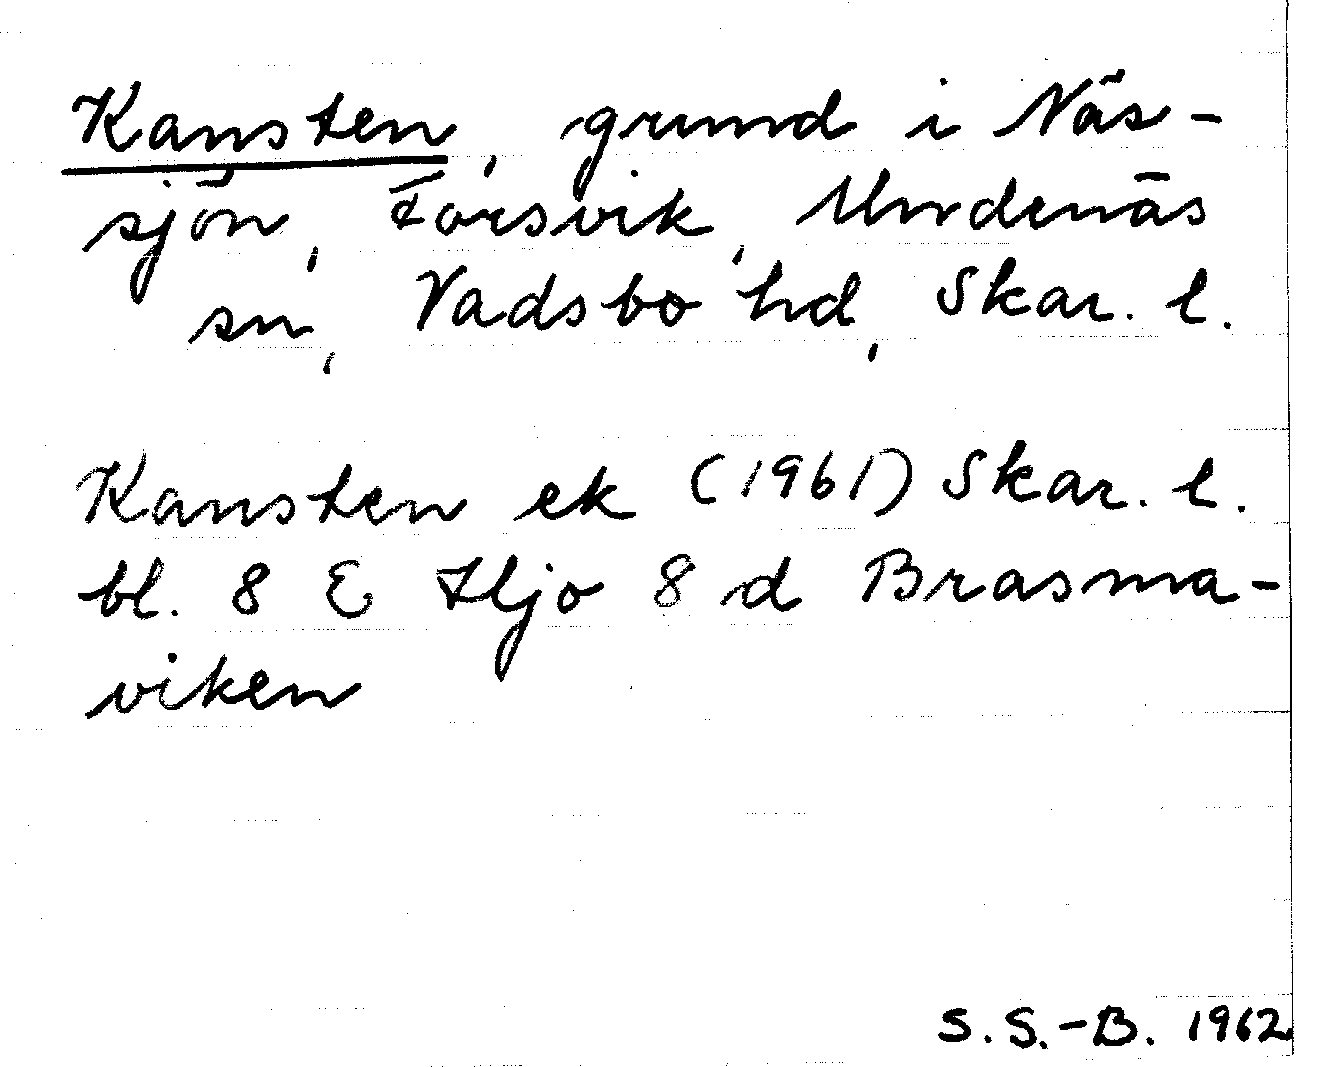 Kansten, grund i Näs-
sjön, Forsvik, Undenäs
sn, Vadsbo hd, Skar. l.
Kansten ek (1961) Skar. l.
bl. 8 E Hjo 8 d Brasma-
viken
S. S.-B. 1962